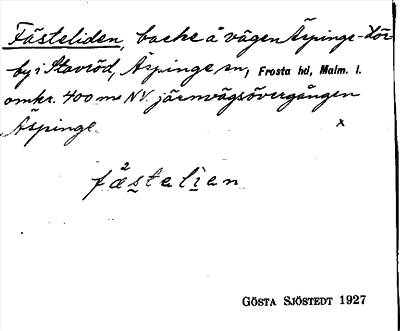 Fästeliden, backe å vägen Äspinge-Hör-
by i Stavröd, Äspinge sn, Frosta hd, Malm. l.
omkr. 400 m NV. järnvägsövergången
Äspinge.
x
2
fæstelien
GÖSTA SJÖSTEDT 1927